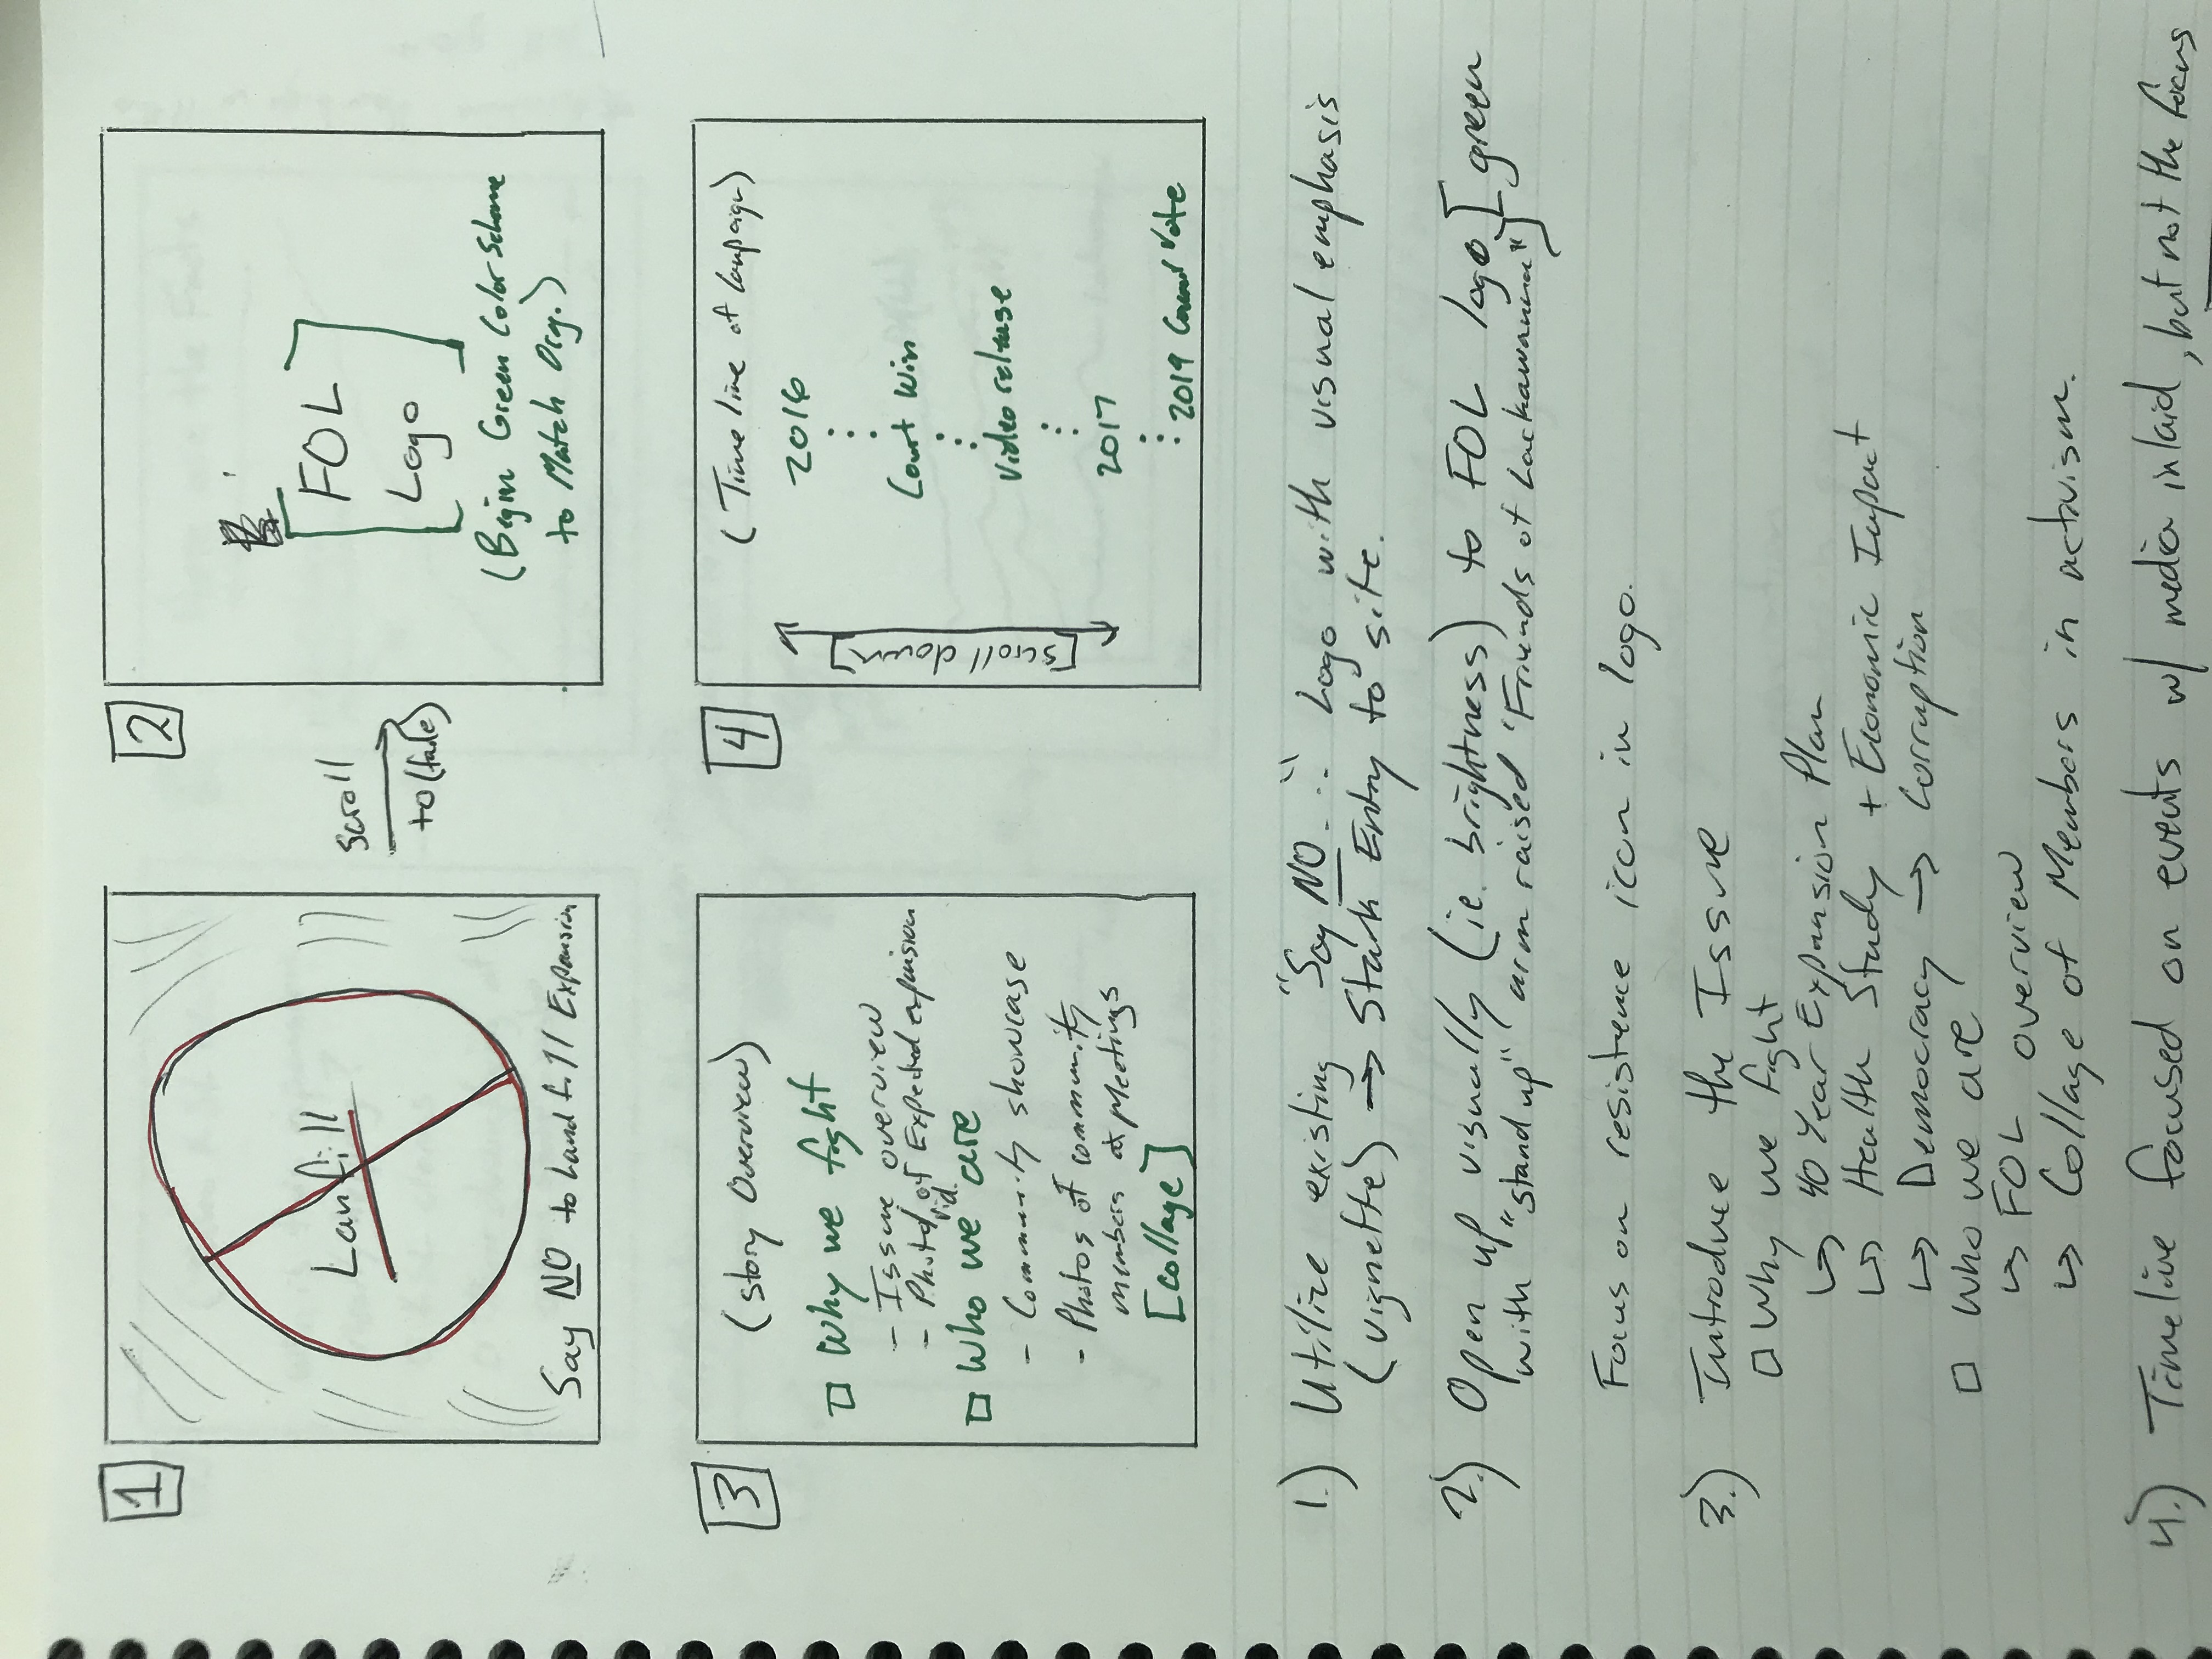 1
Lanfill
Say NO to Landfill Expansion
scroll
to (fade)
2
FOL
Logo
(Begin Green Color Scheme
to Match Org.)
3
(Story Overview)
Why we fight
- Issue overview
- Photo/vid. of Expected expansion
Who we are
- Community showcase
- Photos of community
members at Meetings
[collage]
4
(Timeline of Campaign)
[scroll down]
2016
Court Win
Video release
2017
2019 Council Vote
1.) Utilize existing "Say NO..." Logo with visual emphasis
(vignette) → Stark Entry to site.
2.) Open up visually (ie. brightness) to FOL logo [green
with "stand up" arm raised 'Friends of Lackawanna"]
Focus on resistence icon in logo.
3.) Introduce the Issue
□ Why we fight
↳ 40 Year Expansion Plan
↳ Health Study + Economic Impact
↳ Democracy → Corruption
□ Who we are
↳ FOL overview
↳ Collage of Members in activism.
4.) Timeline focused on events w/ media inlaid, but not the focus